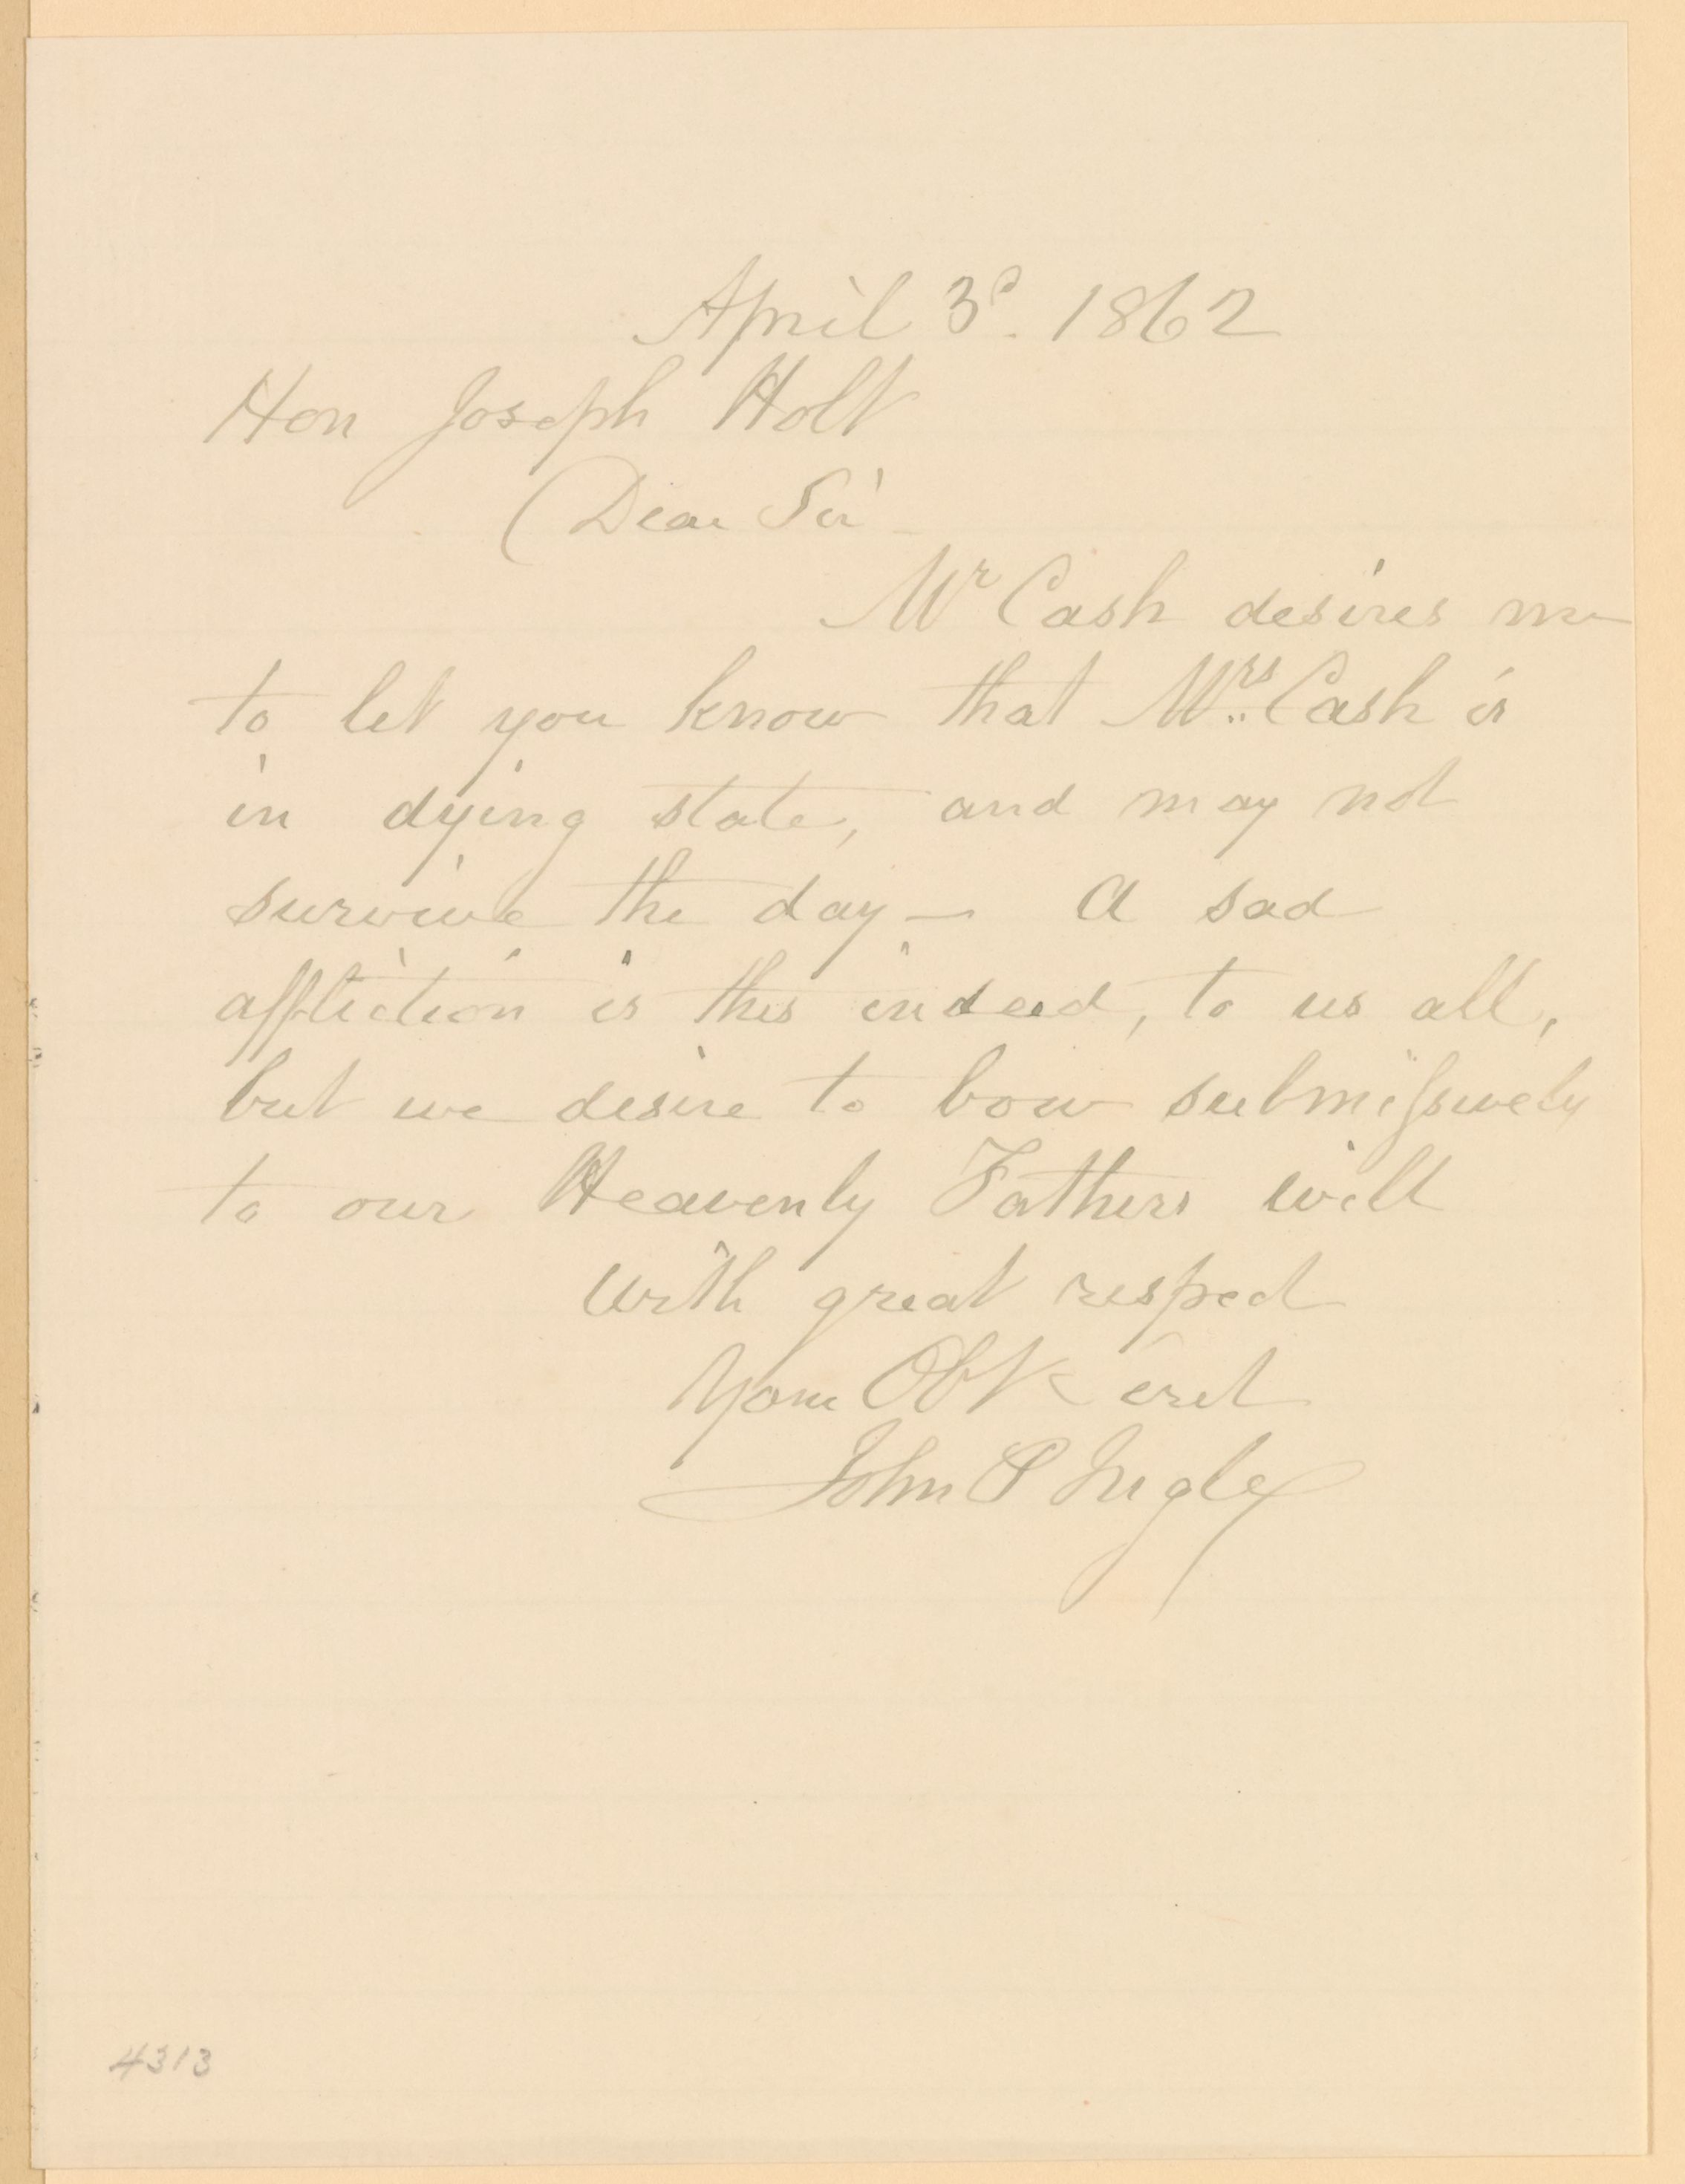 April 3d. 1862
Hon Joseph Holt
Dear Sir -
Mr Cash desires me
to let you know that Mrs. Cash is
in dying state, and may not
survive the day - A sad
affliction is this indeed, to us all,
but we desire to bow submissively
to our Heavenly Fathers will
With great respect
Your Obt
John P Ingle
4313